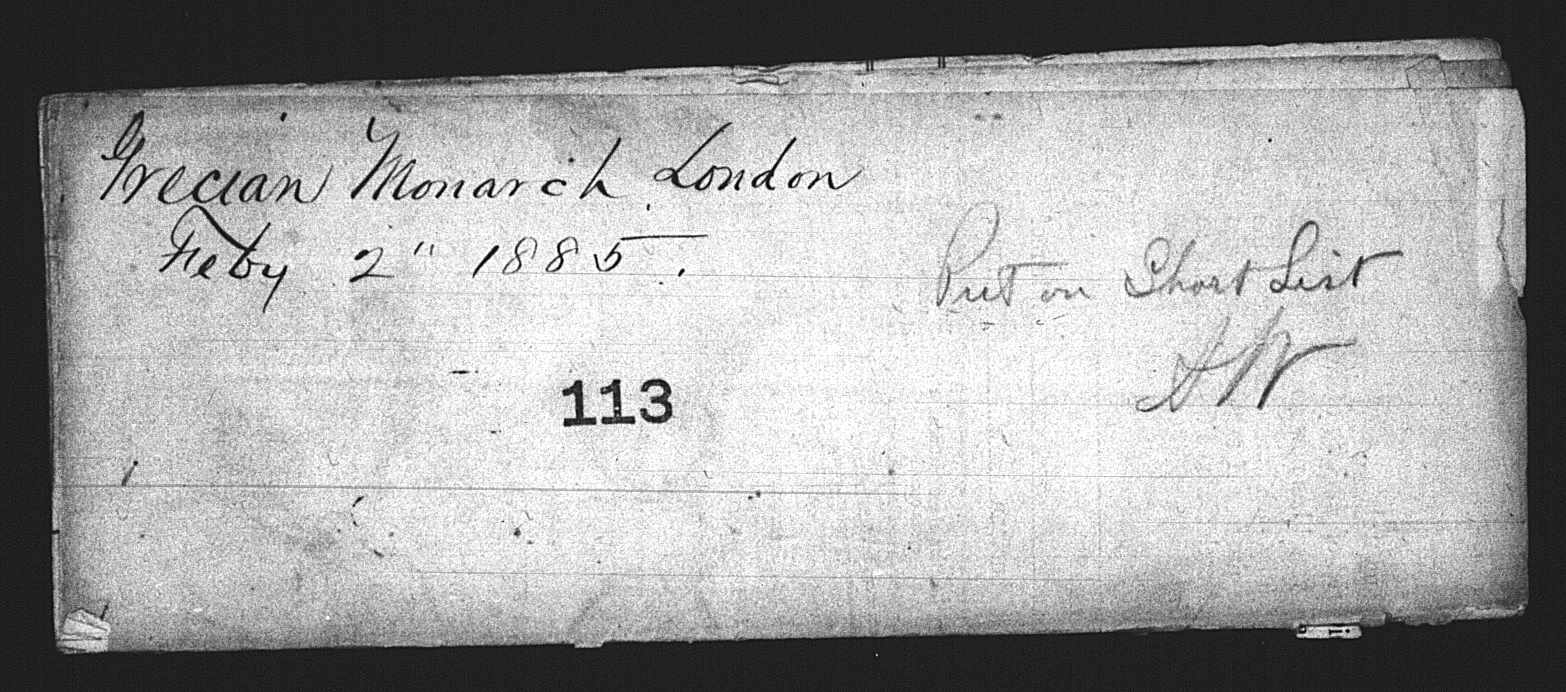 Grecian Monarch London
Feby 2" 1885.
Put on Short List
113